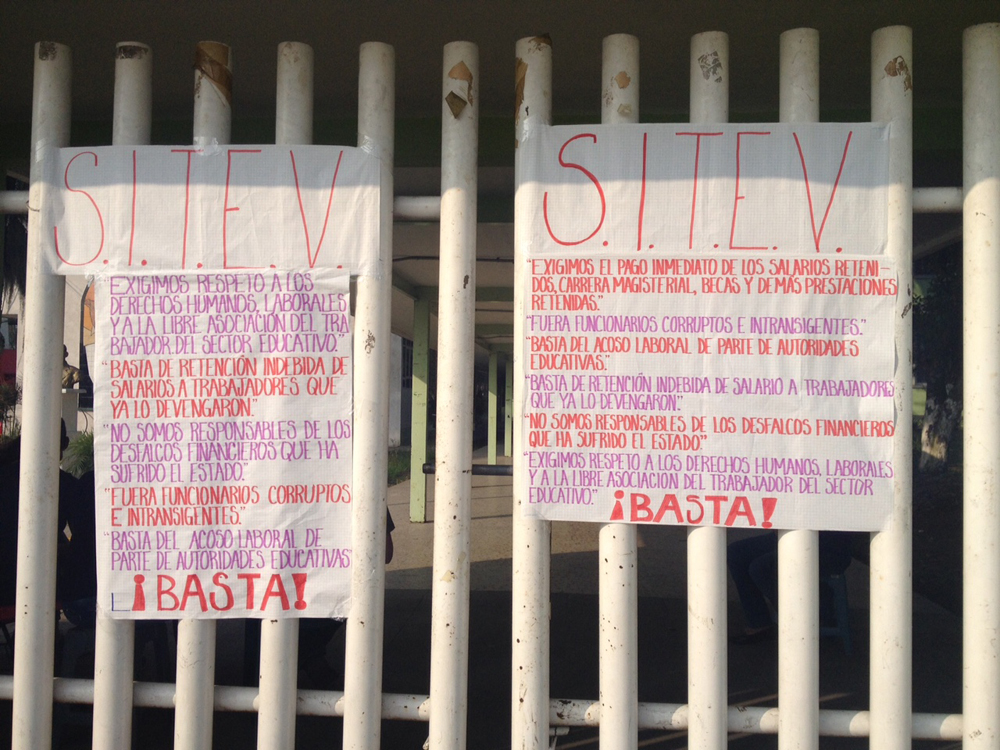 S.I.T.E.V.
"EXIGIMOS RESPETO A LOS
DERECHOS HUMANOS, LABORALES
Y A LA LIBRE ASOCIACIÓN DEL TRA
BAJADOR DEL SECTOR EDUCATIVO."
"BASTA DE RETENCIÓN INDEBIDA DE
SALARIOS A TRABAJADORES QUE
YA LO DEVENGARON."
"NO SOMOS RESPONSABLES DE LOS
DESFALCOS FINANCIEROS QUE HA
SUFRIDO EL ESTADO."
"FUERA FUNCIONARIOS CORRUPTOS
E INTRANSIGENTES."
"BASTA DEL ACOSO LABORAL DE
PARTE DE AUTORIDADES EDUCATIVAS"
¡BASTA!
S.I.T.E.V.
"EXIGIMOS EL PAGO INMEDIATO DE LOS SALARIOS RETENI-
DOS, CARRERA MAGISTERIAL, BECAS Y DEMÁS PRESTACIONES
RETENIDAS."
"FUERA FUNCIONARIOS CORRUPTOS E INTRANSIGENTES."
"BASTA DEL ACOSO LABORAL DE PARTE DE AUTORIDADES
EDUCATIVAS."
"BASTA DE RETENCIÓN INDEBIDA DE SALARIO A TRABAJADORES
QUE YA LO DEVENGARON."
"NO SOMOS RESPONSABLES DE LOS DESFALCOS FINANCIEROS
QUE HA SUFRIDO EL ESTADO."
"EXIGIMOS RESPETO A LOS DERECHOS HUMANOS, LABORALES
Y A LA LIBRE ASOCIACIÓN DEL TRABAJADOR DEL SECTOR
EDUCATIVO."
¡BASTA!